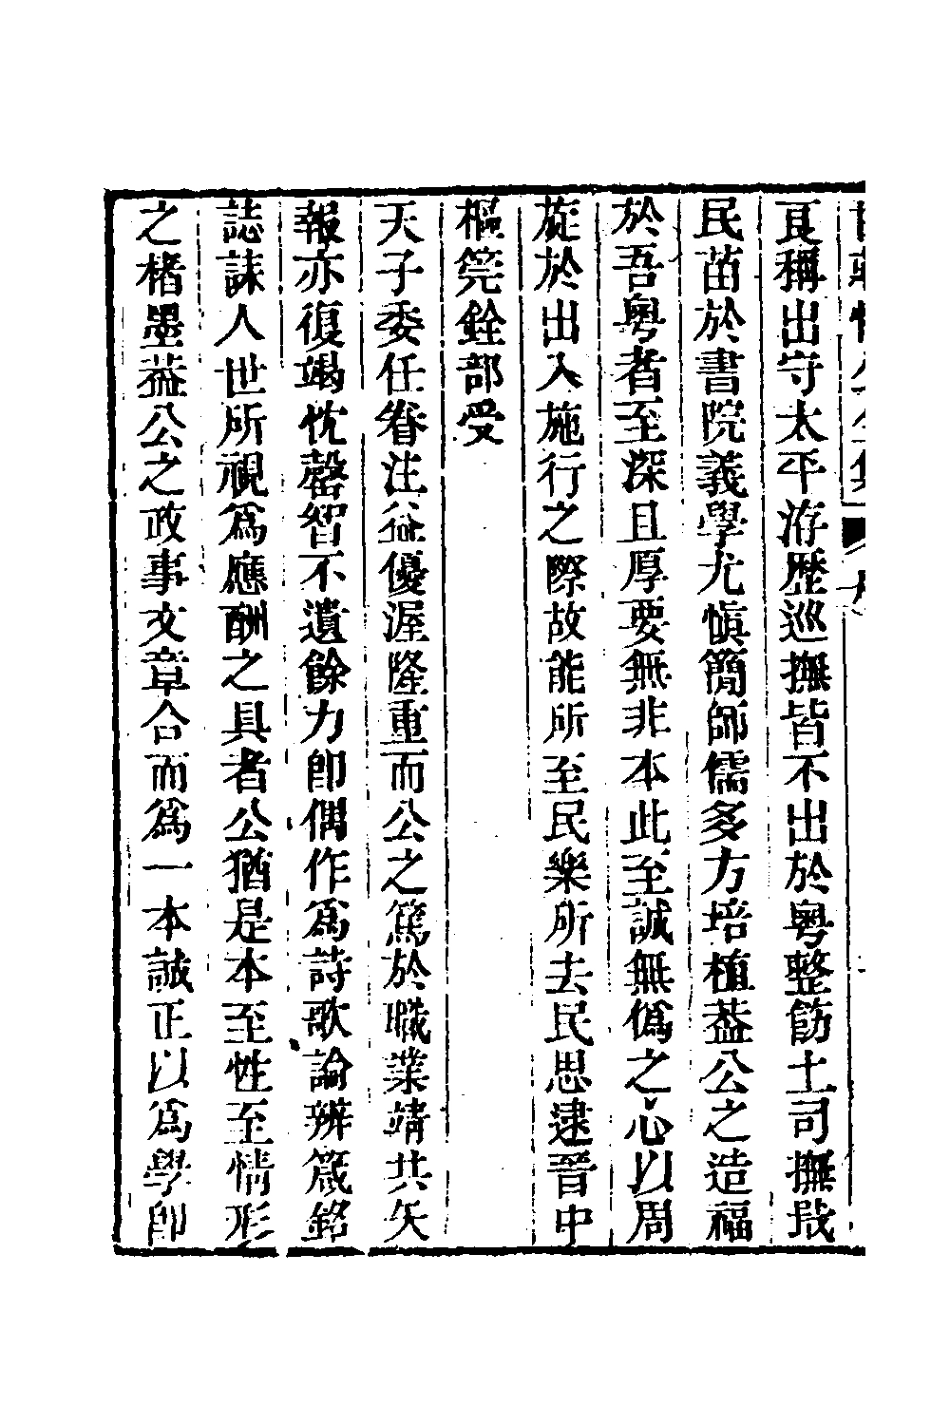 良稱出守太平洊歷巡撫皆不出於粤整飭土司撫戢
民苗於書院義學尤慎簡師儒多方培植葢公之造福
於吾粤者至深且厚要無非本此至誠無僞之心以周
旋於出入施行之際故能所至民樂所去民思逮晉中
樞筦銓部受
天子委任眷注益優渥隆重而公之篤於職業靖共矢
報亦復竭忱罄智不遺餘力卽偶作爲詩歌論辨箴銘
誌誄人世所視爲應酬之具者公猶是本至性至情形
之楮墨葢公之政事文章合而爲一本誠正以爲學卽